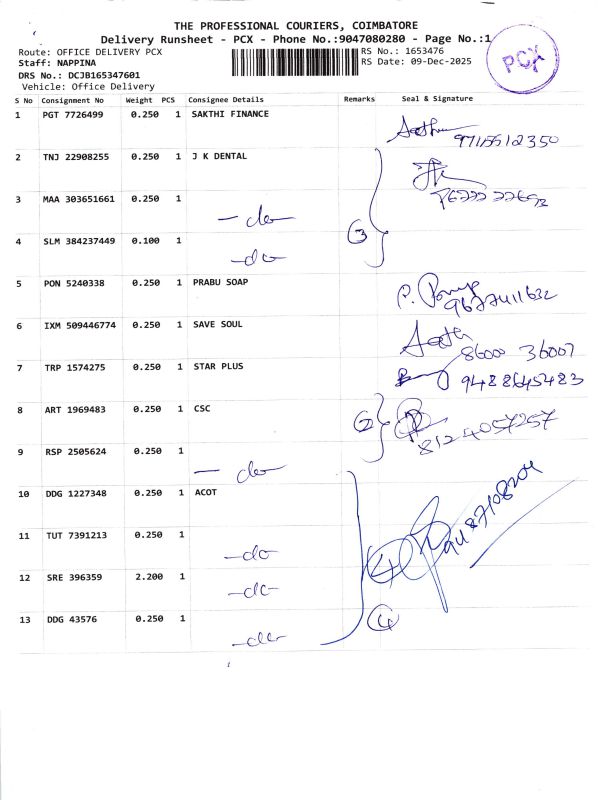 THE PROFESSIONAL COURIERS, COIMBATORE
Delivery Runsheet - PCX - Phone No.:9047080280 - Page No.:1
Route: OFFICE DELIVERY PCX
RS No.: 1653476
Staff: NAPPINA
RS Date: 09-Dec-2025
DRS No.: DCJB165347601
Vehicle: Office Delivery
PCX
S No Consignment No Weight PCS Consignee Details Remarks Seal & Signature
1 PGT 7726499 0.250 1 SAKTHI FINANCE
2 TNJ 22908255 0.250 1 J K DENTAL
3 MAA 303651661 0.250 1 -do-
3
4 SLM 384237449 0.100 1 -do-
5 PON 5240338 0.250 1 PRABU SOAP
9677411632
6 IXM 509446774 0.250 1 SAVE SOUL
86000 36007
7 TRP 1574275 0.250 1 STAR PLUS
9488645483
8 ART 1969483 0.250 1 CSC
2
8124057257
9 RSP 2505624 0.250 1 -do-
10 DDG 1227348 0.250 1 ACOT
11 TUT 7391213 0.250 1 -do-
4
12 SRE 396359 2.200 1 -do-
13 DDG 43576 0.250 1 -do-
4